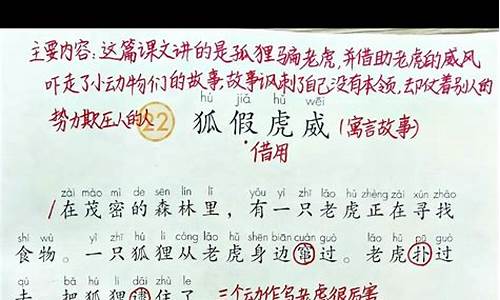 主要内容：这篇课文讲的是孤狸骗老虎,并借助老虎的威风
吓走了小动物们的故事,故事讽刺了自己没有本领,却仗着别人的
势力欺压人的人
hú jiǎ hǔ wēi
22 狐假虎威(寓言故事)
借用
zài mào mì de sēn lín lǐ yǒu yì zhī lǎo hǔ zhèng zài xún zhǎo
在茂密的森林里，有一只老虎正在寻找
shí wù yì zhī hú li cóng lǎo hǔ shēn biān cuàn guò lǎo hǔ pū guò
食物。一只狐狸从老虎身边窜过。老虎扑过
qù bǎ hú li dǎi zhù le
去，把狐狸逮住了。三个动作写老虎很厉害